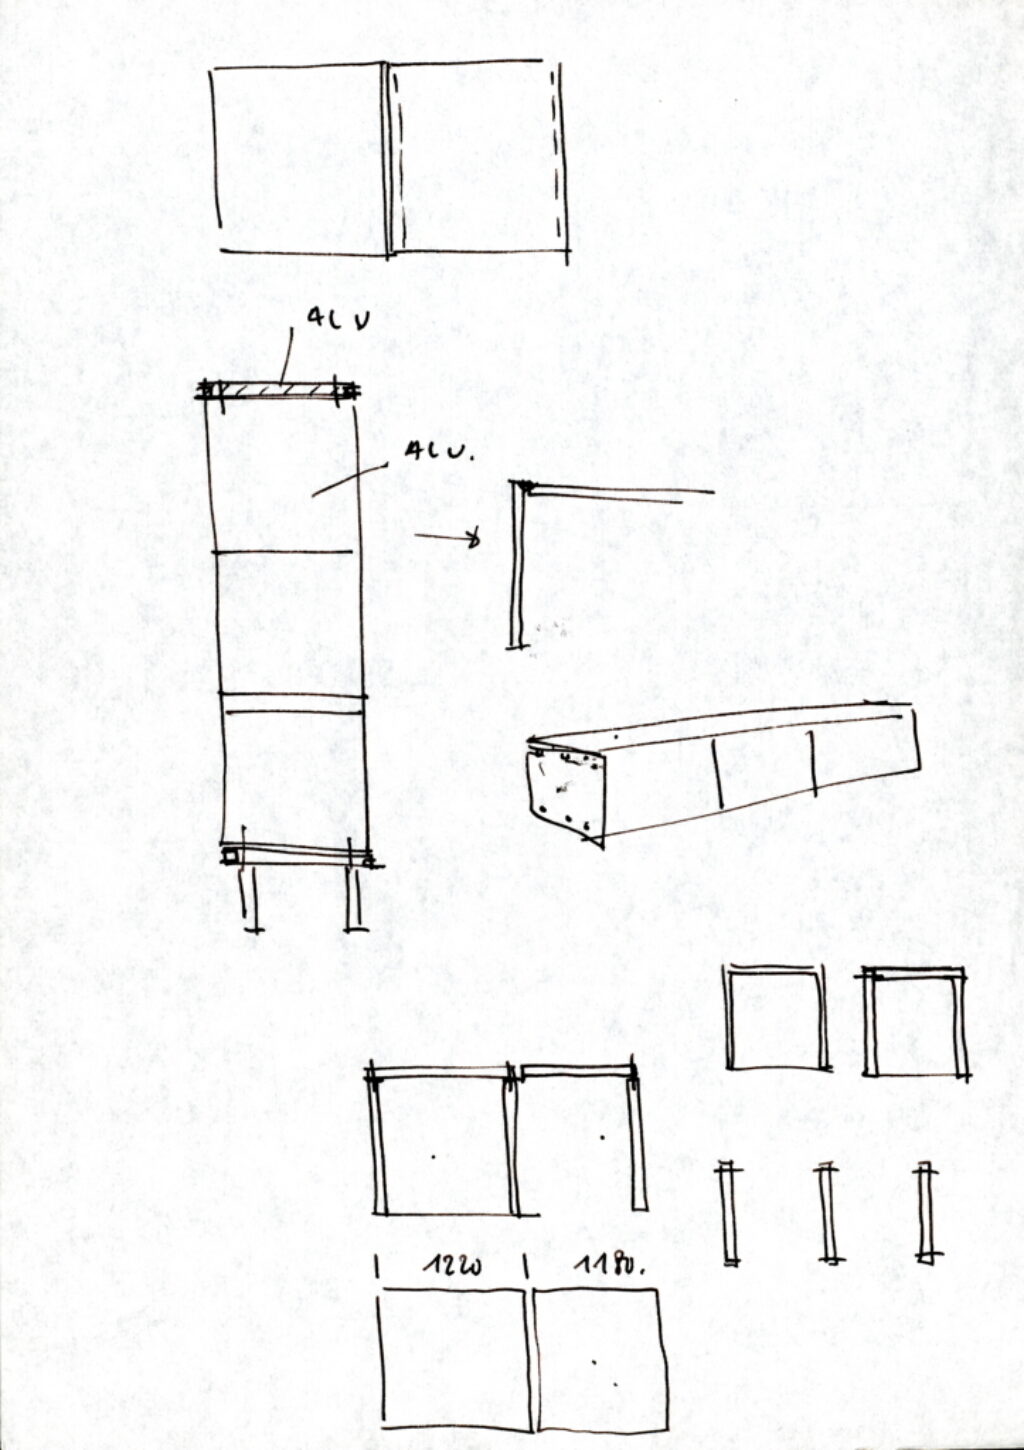 ALU
ALU.
1220 1180.